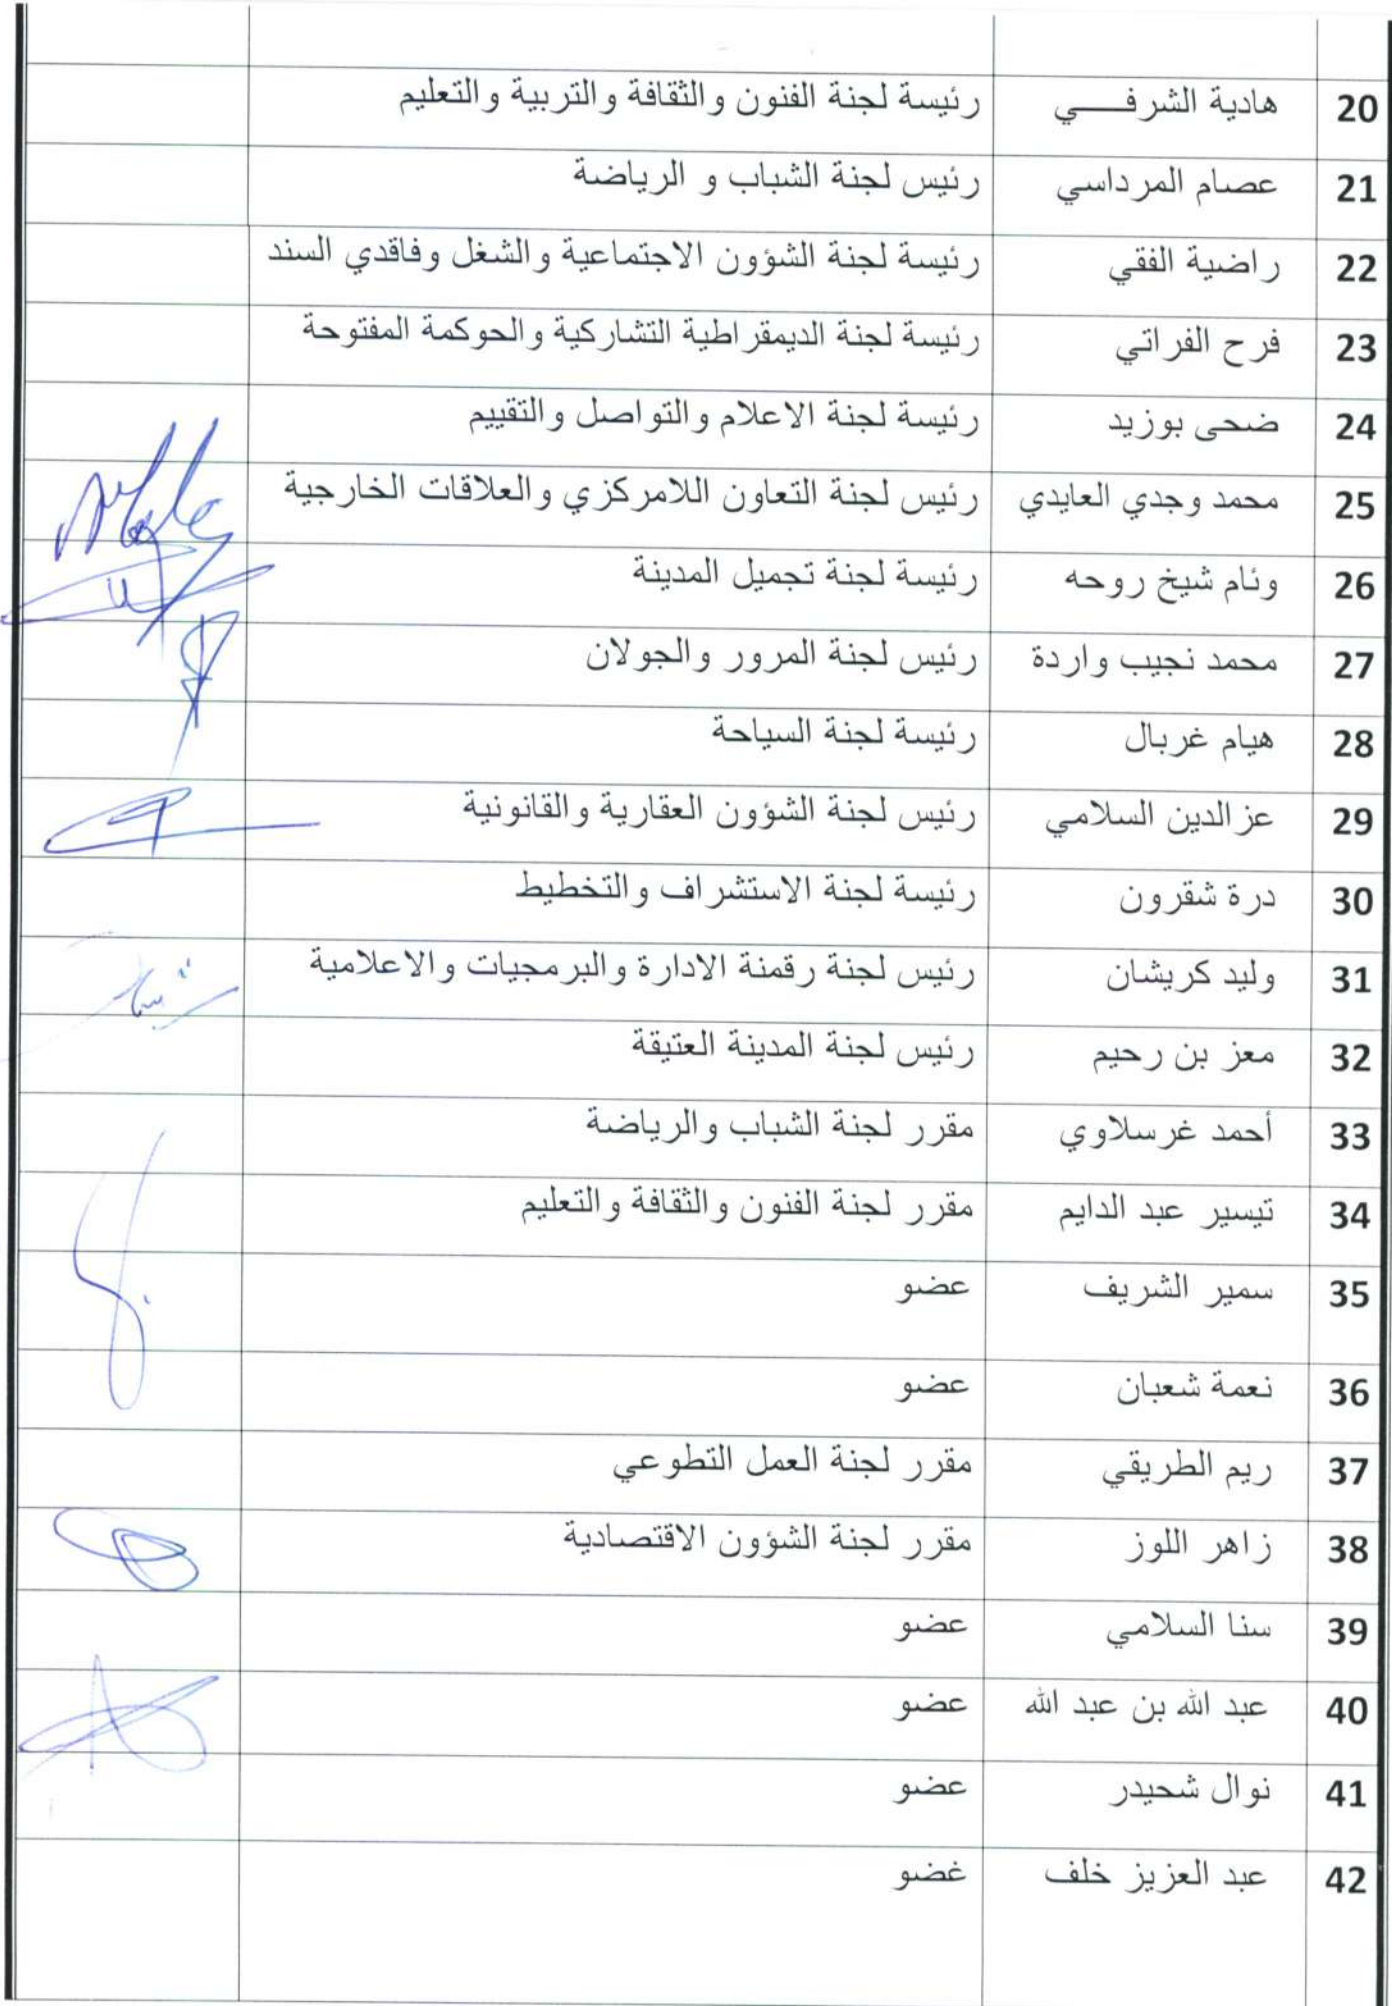 20 هادية الشرفـــي رئيسة لجنة الفنون والثقافة والتربية والتعليم
21 عصام المرداسي رئيس لجنة الشباب و الرياضة
22 راضية الفقي رئيسة لجنة الشؤون الاجتماعية والشغل وفاقدي السند
23 فرح الفراتي رئيسة لجنة الديمقراطية التشاركية والحوكمة المفتوحة
24 ضحى بوزيد رئيسة لجنة الاعلام والتواصل والتقييم
25 محمد وجدي العايدي رئيس لجنة التعاون اللامركزي والعلاقات الخارجية
26 وئام شيخ روحه رئيسة لجنة تجميل المدينة
27 محمد نجيب واردة رئيس لجنة المرور والجولان
28 هيام غربال رئيسة لجنة السياحة
29 عزالدين السلامي رئيس لجنة الشؤون العقارية والقانونية
30 درة شقرون رئيسة لجنة الاستشراف والتخطيط
31 وليد كريشان رئيس لجنة رقمنة الادارة والبرمجيات والاعلامية
32 معز بن رحيم رئيس لجنة المدينة العتيقة
33 أحمد غرسلاوي مقرر لجنة الشباب والرياضة
34 تيسير عبد الدايم مقرر لجنة الفنون والثقافة والتعليم
35 سمير الشريف عضو
36 نعمة شعبان عضو
37 ريم الطريقي مقرر لجنة العمل التطوعي
38 زاهر اللوز مقرر لجنة الشؤون الاقتصادية
39 سنا السلامي عضو
40 عبد الله بن عبد الله عضو
41 نوال شحيدر عضو
42 عبد العزيز خلف غضو